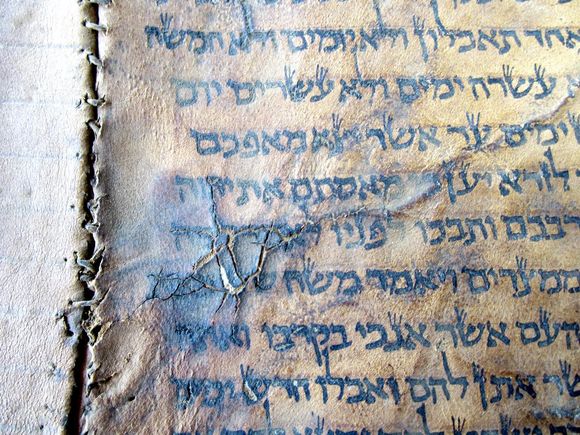 אחד תאכלון ולא יומים ולא חמשה
עשרה ימים ולא עשרים יום
ימים עד אשר יצא מאפכם
לזרא יען כי מאסתם את יהוה
רבכם ותבכו לפניו
ממצרים ויאמר משה
העם אשר אנכי בקרבו ואתה
שר אתן להם ואכלו חדש ימים